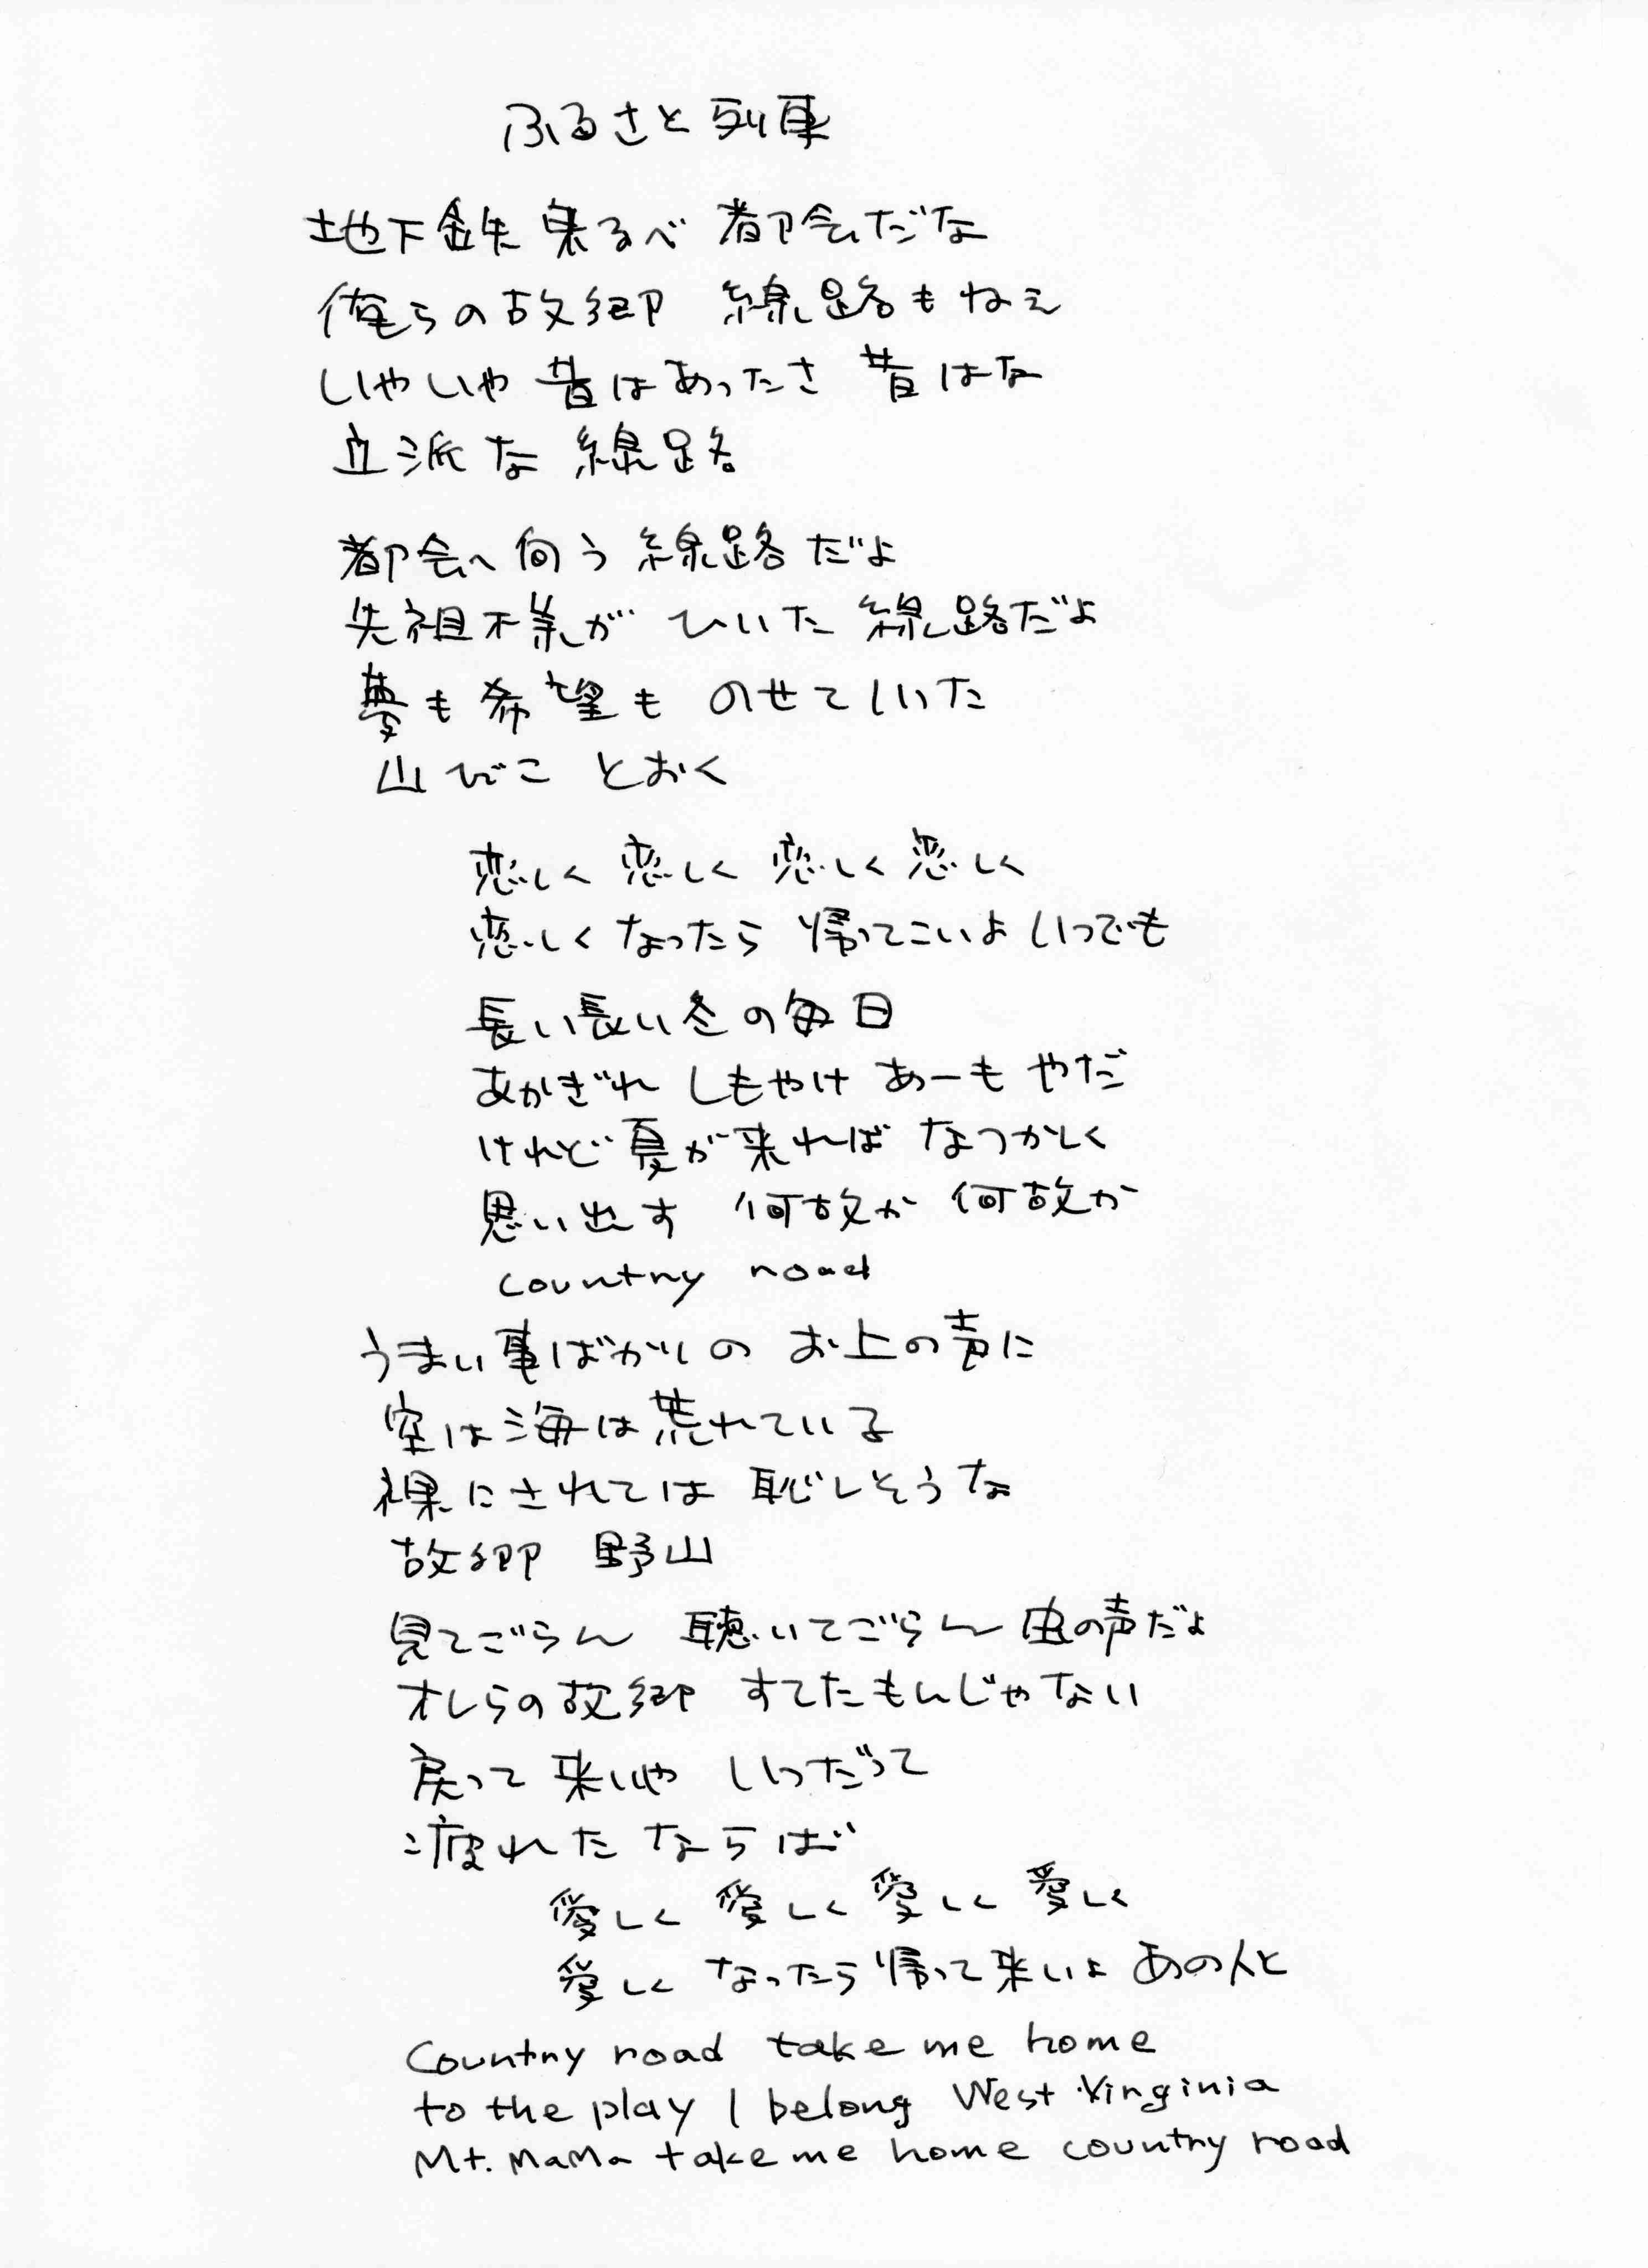 ふるさと列車
地下鉄 乗るべ 都会だな
俺らの故郷 線路もねえ
いやいや 昔はあったさ 昔はな
立派な 線路
都会へ向う 線路だよ
先祖様が ひいた 線路だよ
夢も希望も のせていた
山びこ とおく
恋しく 恋しく 恋しく 恋しく
恋しく なったら 帰ってこいよ いつでも
長い長い冬の毎日
あかぎれ しもやけ あーも やだ
けれど夏が来れば なつかしく
思い出す 何故か 何故か
country road
うまい事ばかりの お上の声に
空は海は荒れている
裸にされては 恥しそうな
故郷 野山
見てごらん 聴いてごらん 虫の声だよ
オレらの故郷 すてたもんじゃない
戻って 来いや いつだって
疲れた ならば
愛しく 愛しく 愛しく 愛しく
愛しく なったら 帰って来いよ あの人と
Country road take me home
to the play I belong West Virginia
Mt. MaMa take me home country road